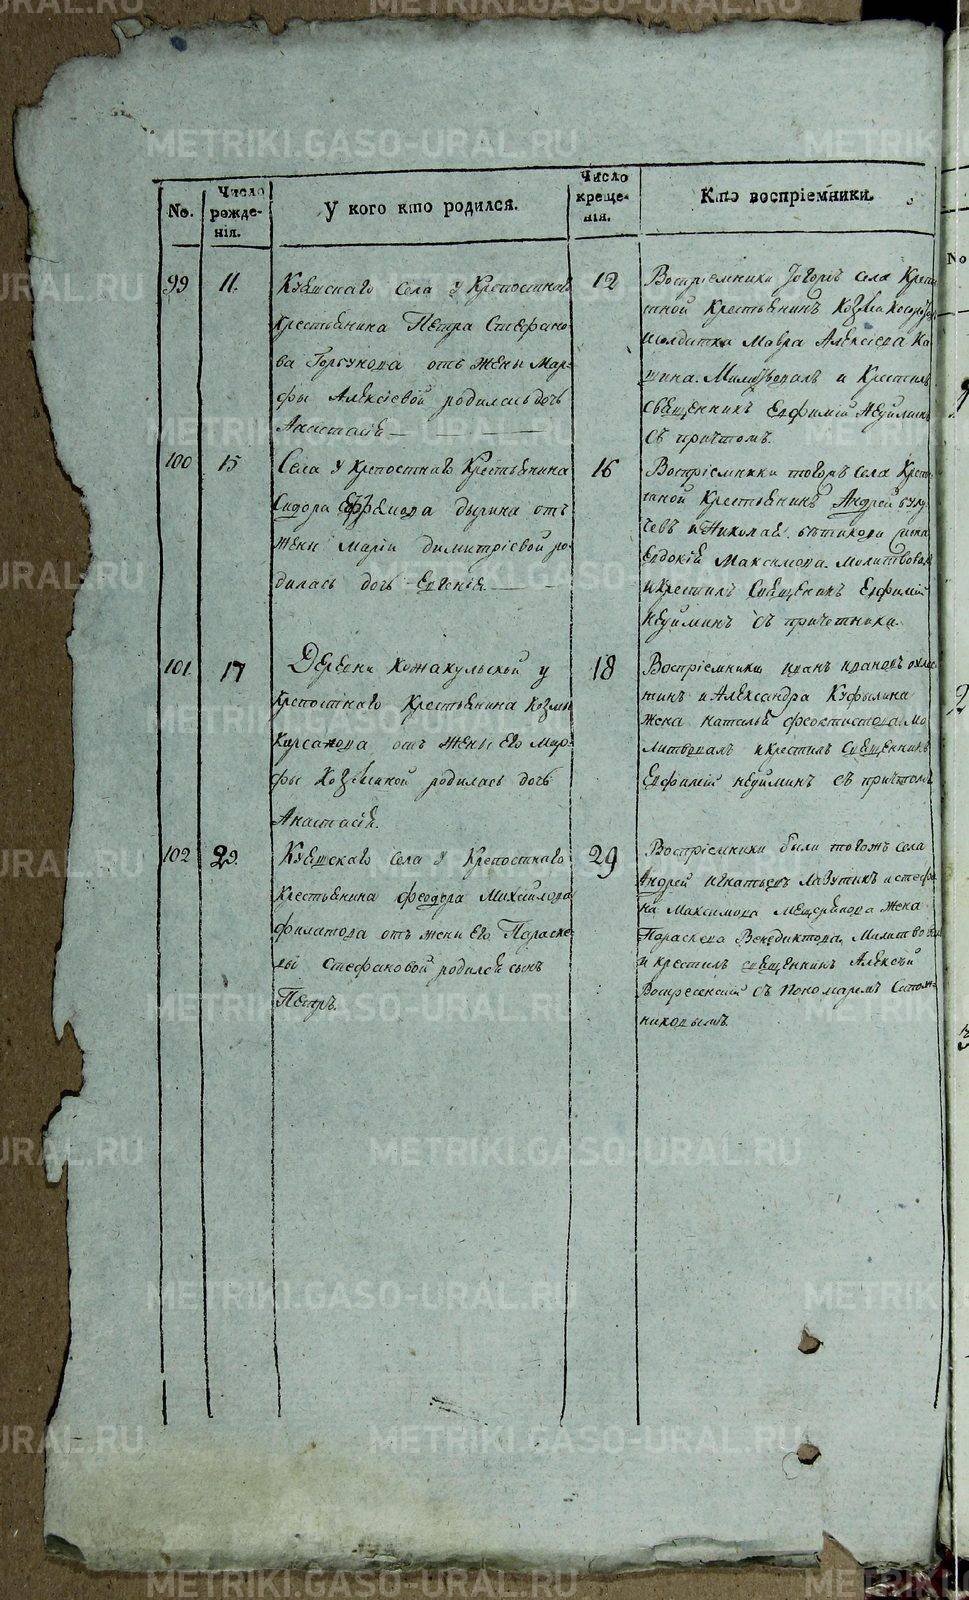 No.
Число рожде-
нія.
У кого кто родился.
Число
креще-
нія.
Кто воспріемники.
99
11.
Куяшскаго Села у Крепостнаго
Крестьянина Петра Стефано
ва Горгунова отъ жены Мар-
фы Алексіевой родилась дочь
Анастасія
12
Воспріемники тогожъ села Крепо
тной Крестьянинъ Козма
Мавра Алексіева
Молитвовалъ и Крестилъ
Священникъ Евфимій Неуйминъ
Съ причтомъ.
100
15
Села у крепостнаго Крестьянина
Сидора Ефремова дырина отъ
жены Маріи димитріевой ро-
дилась дочь Евгенія
16
Воспріемники тогожъ села Крепо
тной Крестьянинъ Андрей
и Николай
Евдокія Максимова. Молитвовалъ
и крестилъ Священикъ Евфимій
Неуйминъ съ причетники.
101.
17
Деревни Кожакульской у
Крепостнаго Крестьянина Козмы
Кирсанова отъ жены его Мар-
фы Козминой родилась дочь
Анастасія.
18
Воспріемники иванъ ивановъ
и Александра
жена наталья феоктистова. Мо
литвовалъ и крестилъ Священникъ
Евфимій неуйминъ съ причтомъ
102
29.
Куяшскаго Села у Крепостнаго
Крестьянина феодора Михайлова
филатова отъ жены его Параске-
вы Стефановой родился сынъ
Петръ.
29
Воспріемники были тогожъ села
Андрей игнатьевъ Лазутинъ и стефа
на Максимова Мещерякова жена
Параскева Венедиктова. Молитвовалъ
и крестилъ священникъ Алексѣй
Воскресенскій съ пономаремъ Сапож-
никовымъ.
METRIKI.GASO-URAL.RU